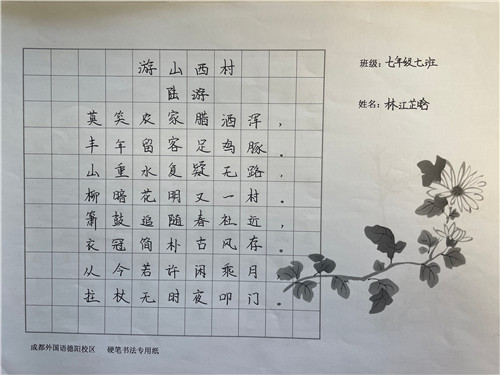 游山西村
陆游
莫笑农家腊酒浑，
丰年留客足鸡豚。
山重水复疑无路，
柳暗花明又一村。
箫鼓追随春社近，
衣冠简朴古风存。
从今若许闲乘月
拄杖无时夜叩门。
班级：七年级七班
姓名：林江芷晗
成都外国语德阳校区 硬笔书法专用纸